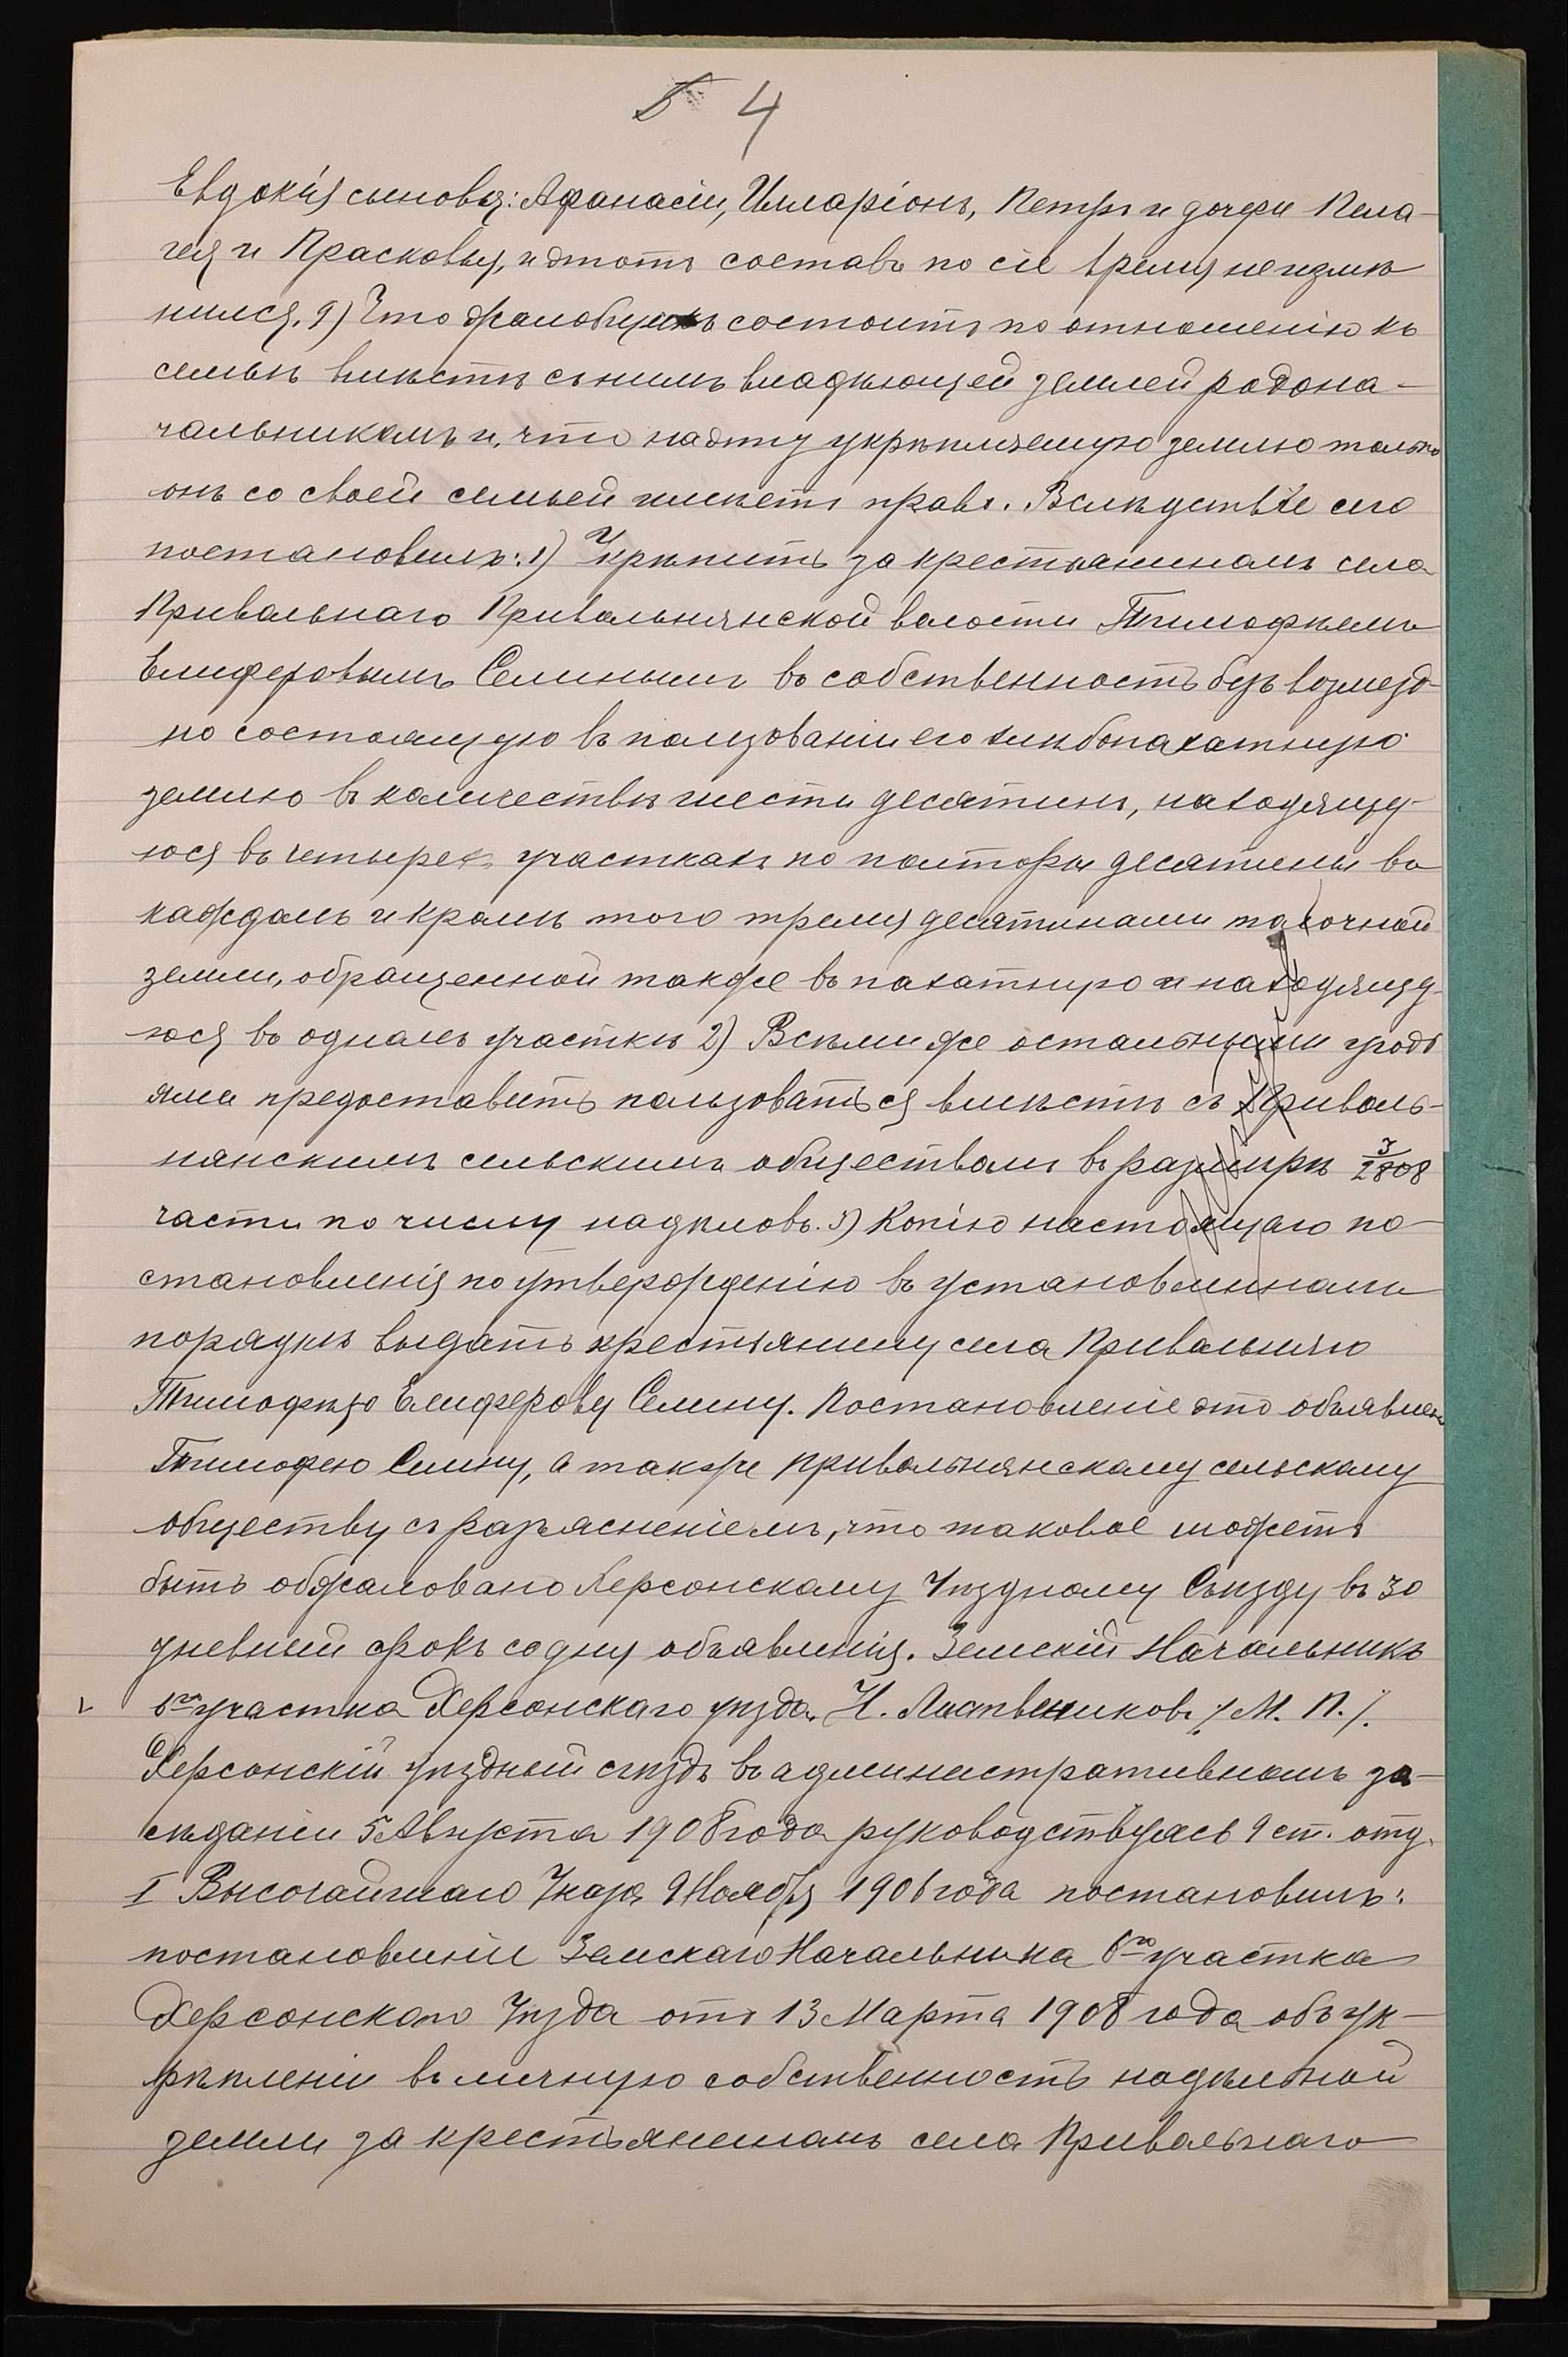 4
Евдокія сыновья: Афанасій, Илларіонъ, Петръ и дочери Пела-
гея и Прасковья, и этотъ составъ по сіе время не измѣ
нился. 9) Что жалобщикъ состоитъ по отношенію къ
семьѣ вмѣстѣ съ нимъ владѣющей землей родона-
чальникомъ и, что на эту укрѣпляемую землю только
онъ со своей семьей имѣетъ право. Вслѣдствіе сего
постановилъ: 1) Укрѣпить за крестьяниномъ села
Привольнаго Привольнянской волости Тимофѣемъ
Елиферовымъ Селинымъ въ собственность безвозмезд-
но состоящую въ пользованіи его хлѣбопахатную
землю въ количествѣ шести десятинъ, находящу-
юся въ четырехъ участкахъ по полторы десятины въ
каждомъ и кромѣ того тремя десятинами толочной
земли, обращенной также въ пахатную и находящу-
юся въ одномъ участкѣ 2) Всѣми же остальными угодь
ями предоставить пользоваться вмѣстѣ съ Приволь-
нянскимъ сельскимъ обществомъ въ размѣрѣ 3/2808
части по числу надѣловъ. 3) Копію настоящаго по-
становленія по утвержденію въ установленномъ
порядкѣ выдать крестьянину села Привольнаго
Тимофѣю Елиферову Селину. Постановленіе это объявлено
Тимофею Селину, а также привольнянскому сельскому
обществу съ разъясненіемъ, что таковое можетъ
быть обжаловано Херсонскому Уѣздному Съѣзду въ 30
дневный срокъ со дня объявленія. Земскій Начальникъ
6го участка Херсонскаго уѣзда Н. Листвениковъ /М. П./.
Херсонскій уѣздный съѣздъ въ административномъ за-
сѣданіи 5 Августа 1908 года руководствуясь 9 ст. отд.
I Высочайшаго Указа 9 Ноября 1906 года постановилъ:
постановленіе Земскаго Начальника 6го участка
Херсонскаго Уѣзда отъ 13 Марта 1908 года объ ук-
рѣпленіи въ личную собственность надѣльной
земли за крестьяниномъ села Привольнаго